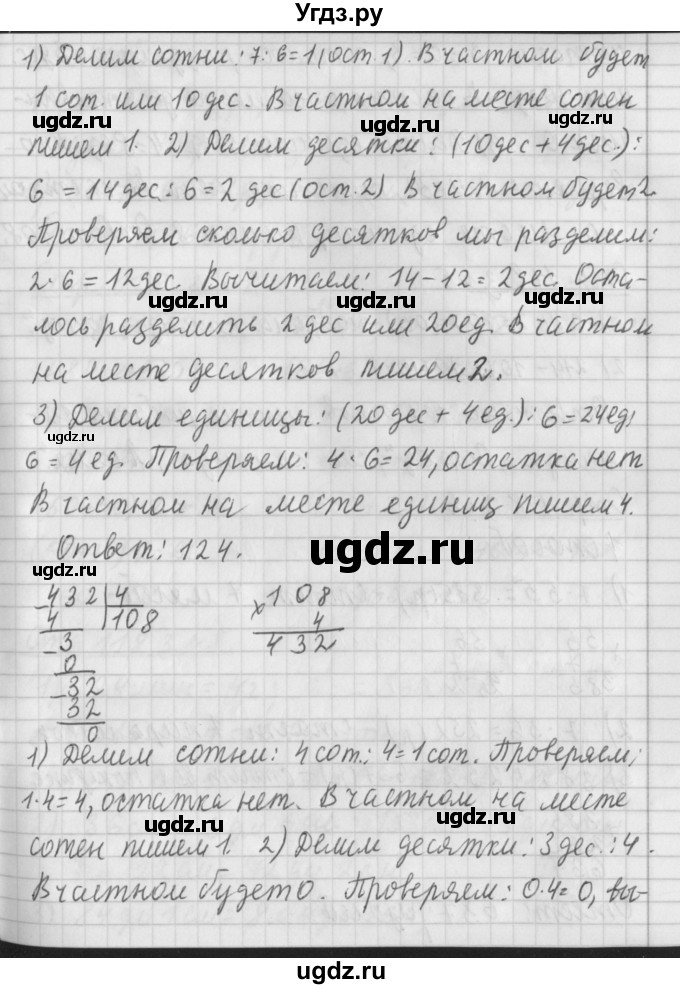 Угдз.ру
1) Делим сотни: 7:6=1(ост.1). В частном будет
1 сот. или 10 дес. В частном на месте сотен
пишем 1. 2) Делим десятки: (10дес+4дес.):
6 = 14дес.: 6=2 дес(ост.2) В частном будет 2.
Проверяем сколько десятков мы разделим:
2·6=12дес. Вычитаем: 14-12=2дес. Оста-
лось разделить 2 дес или 20ед. В частном
на месте десятков пишем 2.
3) Делим единицы: (20дес+4ед.):6=24ед:
6=4ед. Проверяем: 4·6=24, остатка нет
В частном на месте единиц пишем 4.
Ответ: 124.
-432|4
4 |108
-3
0
-32
32
0
×108
4
432
1) Делим сотни: 4сот.:4=1сот. Проверяем:
1·4=4, остатка нет. В частном на месте
сотен пишем 1. 2) Делим десятки: 3дес.:4.
В частном будет 0. Проверяем: 0·4=0, вы-
ugdz.ru
ugdz.ru
ugdz.ru
ugdz.ru
ugdz.ru
ugdz.ru
ugdz.ru
ugdz.ru
ugdz.ru
ugdz.ru
ugdz.ru
ugdz.ru
ugdz.ru